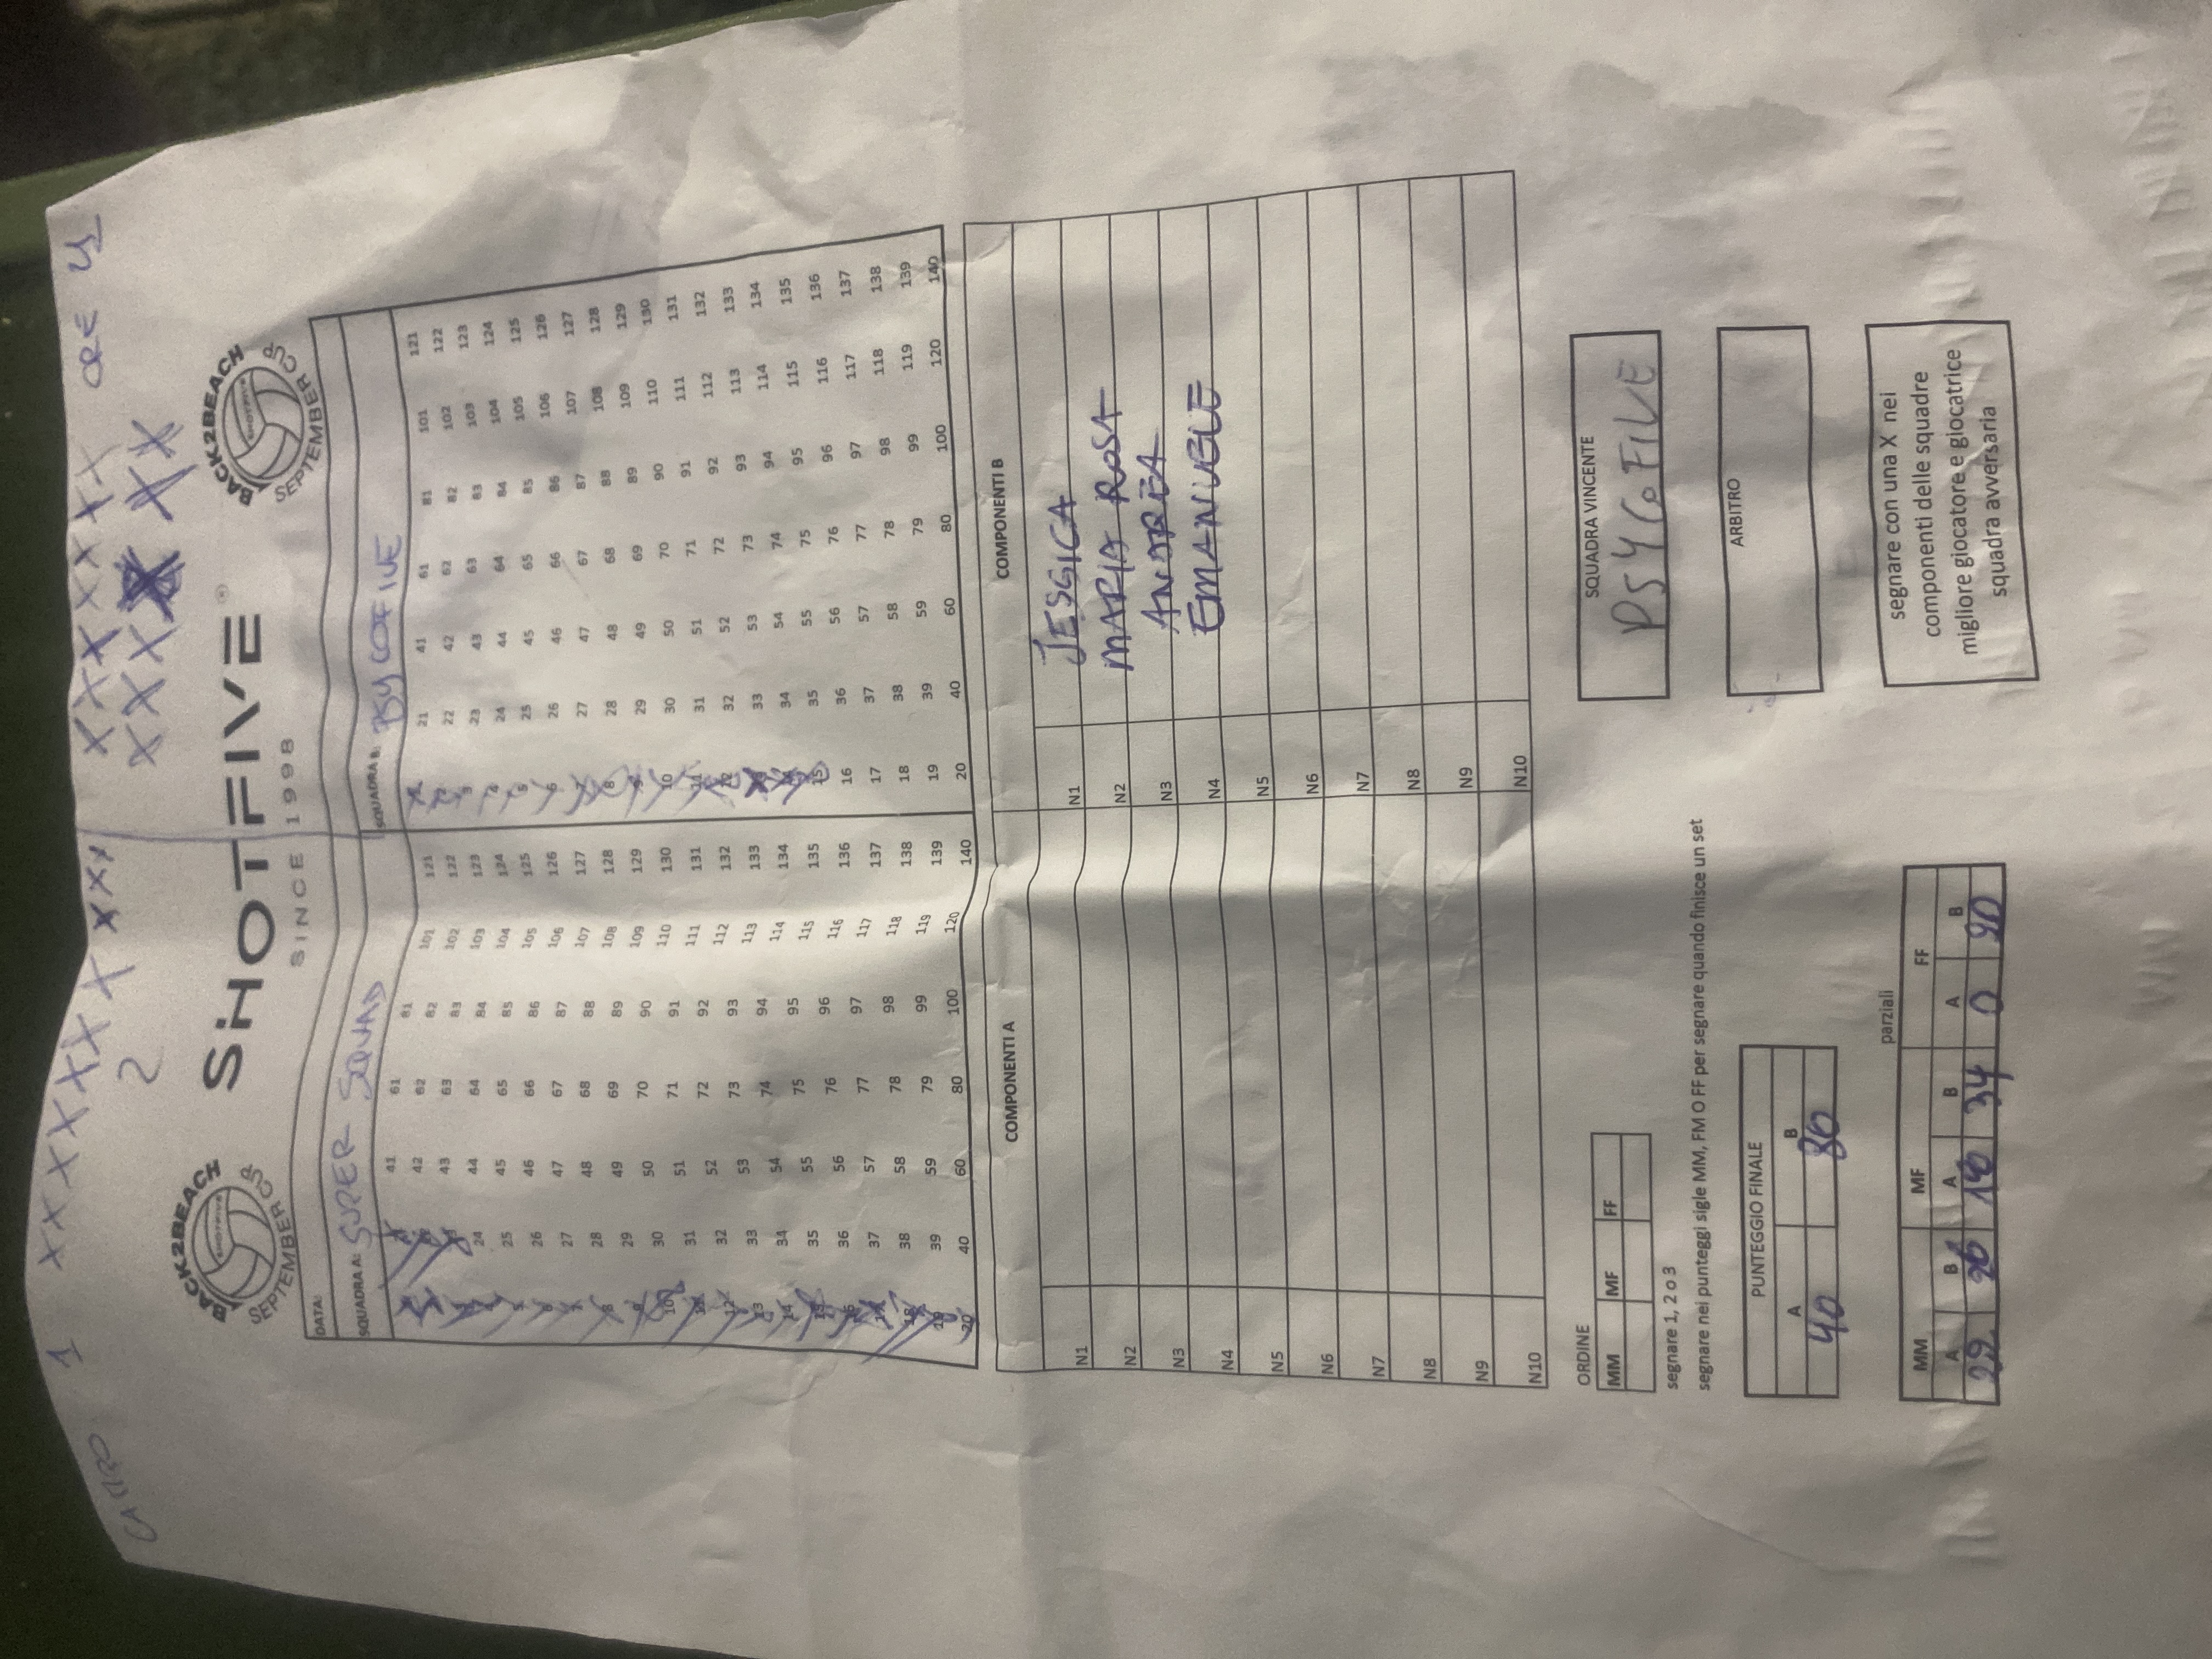 CAMPO 1 XXXXXXXXXXXX XXXXXXXX ORE 21
2 XXXXXXX
BACK2BEACH
SEPTEMBER CUP
SHOTFIVE®
SINCE 1998
BACK2BEACH
SEPTEMBER CUP
DATA:
SQUADRA A: SUPER SQUAD
SQUADRA B: PSYCOFIVE
41 61 81 101 121 21 41 61 81 101 121
42 62 82 102 122 22 42 62 82 102 122
43 63 83 103 123 23 43 63 83 103 123
24 44 64 84 104 124 24 44 64 84 104 124
25 45 65 85 105 125 25 45 65 85 105 125
26 46 66 86 106 126 26 46 66 86 106 126
27 47 67 87 107 127 27 47 67 87 107 127
28 48 68 88 108 128 8 28 48 68 88 108 128
29 49 69 89 109 129 9 29 49 69 89 109 129
10 30 50 70 90 110 130 10 30 50 70 90 110 130
31 51 71 91 111 131 11 31 51 71 91 111 131
12 32 52 72 92 112 132 12 32 52 72 92 112 132
13 33 53 73 93 113 133 33 53 73 93 113 133
14 34 54 74 94 114 134 34 54 74 94 114 134
15 35 55 75 95 115 135 15 35 55 75 95 115 135
16 36 56 76 96 116 136 16 36 56 76 96 116 136
17 37 57 77 97 117 137 17 37 57 77 97 117 137
18 38 58 78 98 118 138 18 38 58 78 98 118 138
19 39 59 79 99 119 139 19 39 59 79 99 119 139
20 40 60 80 100 120 140 20 40 60 80 100 120 140
COMPONENTI A COMPONENTI B
N1 N1 JESSICA
N2 N2 MARIA ROSA
N3 N3 ANDREA
N4 N4 EMANUELE
N5 N5
N6 N6
N7 N7
N8 N8
N9 N9
N10 N10
ORDINE
MM MF FF
segnare 1, 2 o 3
segnare nei punteggi sigle MM, FM O FF per segnare quando finisce un set
SQUADRA VINCENTE
PSYCOFIVE
PUNTEGGIO FINALE
A B
40 80
ARBITRO
parziali
MM MF FF
A B A B A B
29 26 140 34 0 90
segnare con una X nei
componenti delle squadre
migliore giocatore e giocatrice
squadra avversaria